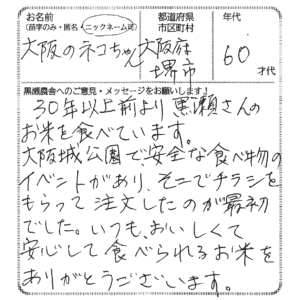 お名前
(苗字のみ・匿名・ニックネーム可)
都道府県
市区町村
年代
大阪のネコちゃん
大阪府
堺市
60
才代
黒瀬農舎へのご意見・メッセージをお願いします!
30年以上前より黒瀬さんの
お米を食べています。
大阪城公園で安全な食べ物の
イベントがあり、そこでチラシを
もらって注文したのが最初
でした。いつも、おいしくて
安心して食べられるお米を
ありがとうございます。